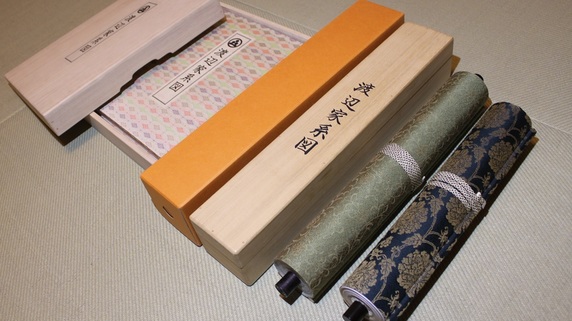 渡辺家系図
渡辺家系図
渡辺家系図